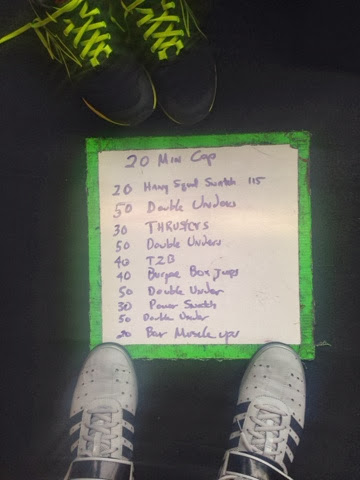 20 Min Cap
20 Hang Squat Snatch 115
50 Double Unders
30 THRUSTERS
50 Double Unders
40 T2B
40 Burpee Box Jumps
50 Double Under
30 Power Snatch
50 Double Under
20 Bar Muscle ups